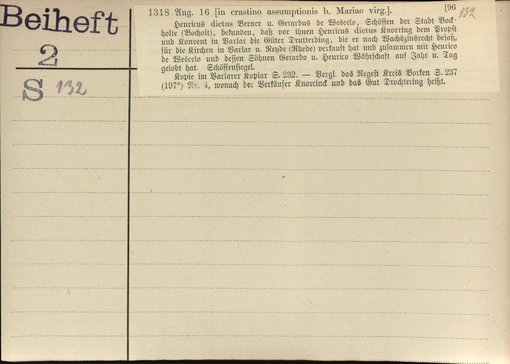 Beiheft
2
S 132
1318 Aug. 16 [in crastino assumptionis b. Mariae virg.]. [96
132
Henricus dictus Berner u. Gerardus de Wescelo, Schöffen der Stadt Bock-
holte (Bocholt), bekunden, daß vor ihnen Henricus dictus Knorring dem Propst
und Konvent in Varlar die Güter Drutterding, die er nach Wachszinsrecht besaß,
für die Kirchen in Varlar u. Reyde (Rhede) verkauft hat und zusammen mit Henrico
de Wescelo und dessen Söhnen Gerardo u. Henrico Währschaft auf Jahr u. Tag
gelobt hat. Schöffensiegel.
Kopie im Varlarer Kopiar S. 232. — Vergl. das Regest Kreis Borken S. 237
(197*) Nr. 4, wonach der Verkäufer Knorinck und das Gut Drochtering heißt.